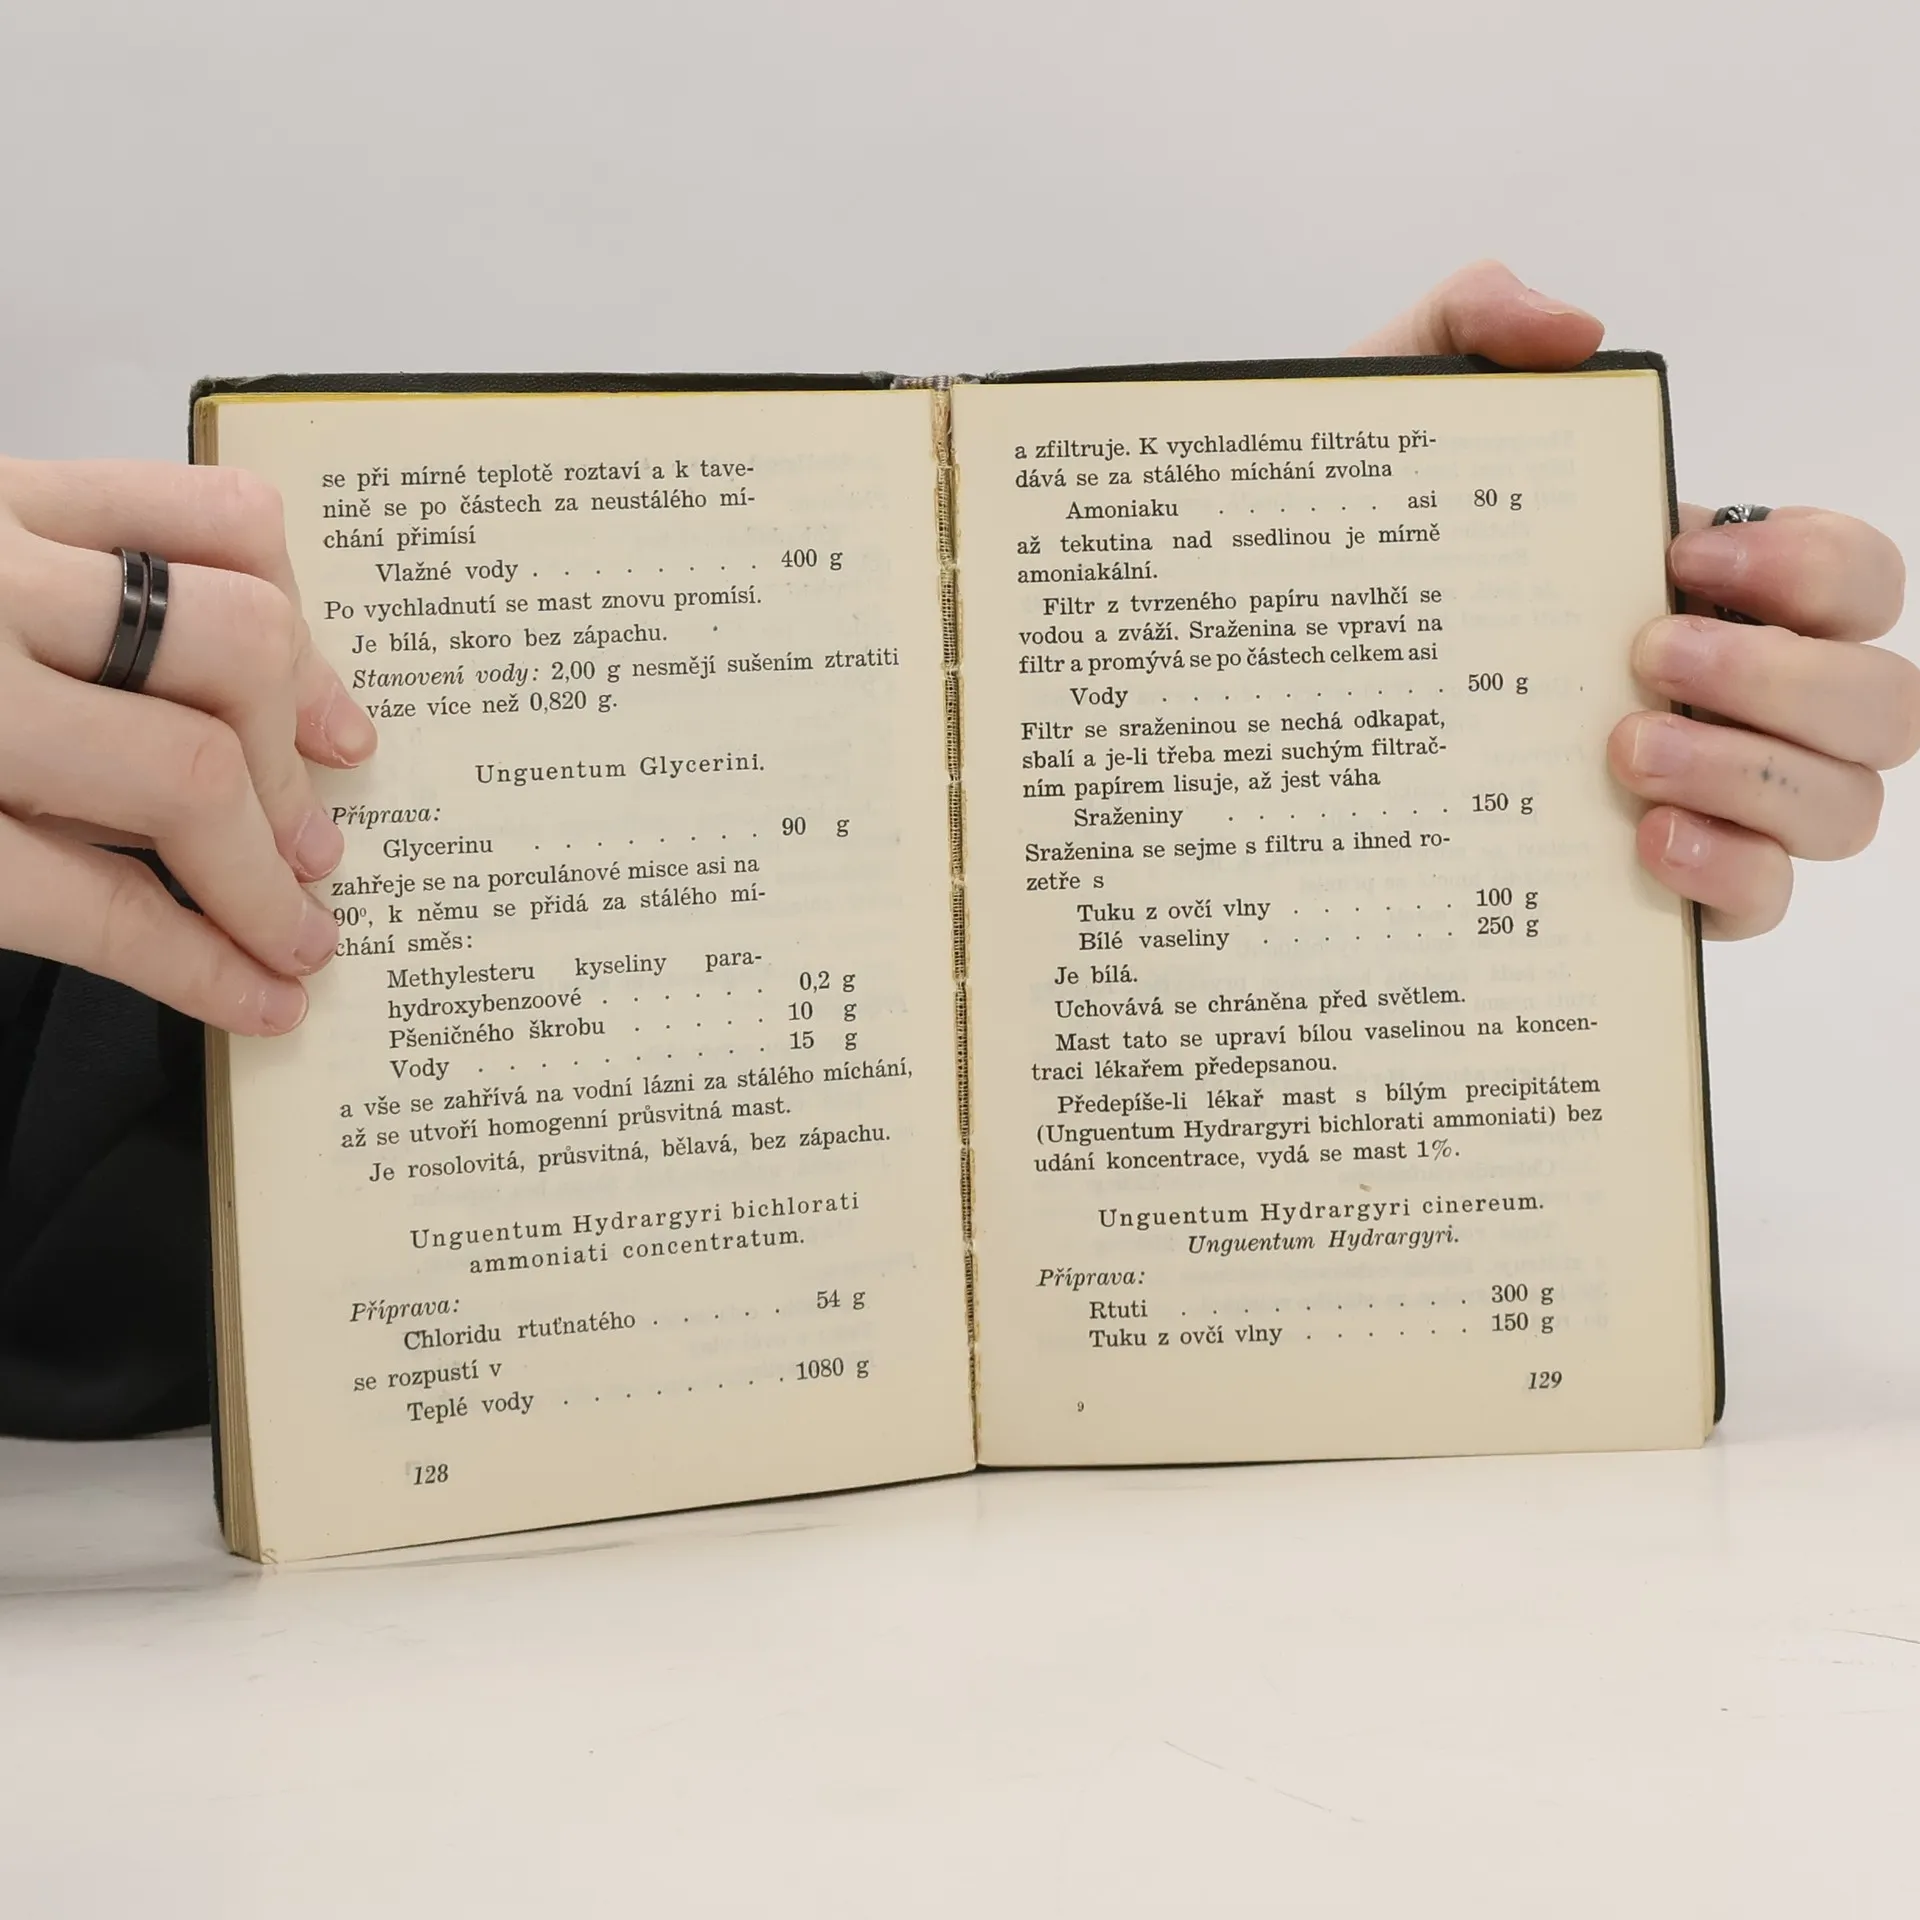 se při mírné teplotě roztaví a k tave-
nině se po částech za neustálého mí-
chání přimísí
Vlažné vody . . . . . . . . 400 g
Po vychladnutí se mast znovu promísí.
Je bílá, skoro bez zápachu.
Stanovení vody: 2,00 g nesmějí sušením ztratiti
váze více než 0,820 g.
Unguentum Glycerini.
Příprava:
Glycerinu . . . . . . . . 90 g
zahřeje se na porculánové misce asi na
90⁰, k němu se přidá za stálého mí-
chání směs:
Methylesteru kyseliny para-
hydroxybenzoové . . . . . . 0,2 g
Pšeničného škrobu . . . . . 10 g
Vody . . . . . . . . . . 15 g
a vše se zahřívá na vodní lázni za stálého míchání,
až se utvoří homogenní průsvitná mast.
Je rosolovitá, průsvitná, bělavá, bez zápachu.
Unguentum Hydrargyri bichlorati
ammoniati concentratum.
Příprava:
Chloridu rtuťnatého . . . . . 54 g
se rozpustí v
Teplé vody . . . . . . . . 1080 g
128
a zfiltruje. K vychladlému filtrátu při-
dává se za stálého míchání zvolna
Amoniaku . . . . . . asi 80 g
až tekutina nad ssedlinou je mírně
amoniakální.
Filtr z tvrzeného papíru navlhčí se
vodou a zváží. Sraženina se vpraví na
filtr a promývá se po částech celkem asi
Vody . . . . . . . . . . 500 g
Filtr se sraženinou se nechá odkapat,
sbalí a je-li třeba mezi suchým filtrač-
ním papírem lisuje, až jest váha
Sraženiny . . . . . . . . 150 g
Sraženina se sejme s filtru a ihned ro-
zetře s
Tuku z ovčí vlny . . . . . . 100 g
Bílé vaseliny . . . . . . . 250 g
Je bílá.
Uchovává se chráněna před světlem.
Mast tato se upraví bílou vaselinou na koncen-
traci lékařem předepsanou.
Předepíše-li lékař mast s bílým precipitátem
(Unguentum Hydrargyri bichlorati ammoniati) bez
udání koncentrace, vydá se mast 1%.
Unguentum Hydrargyri cinereum.
Unguentum Hydrargyri.
Příprava:
Rtuti . . . . . . . . . . 300 g
Tuku z ovčí vlny . . . . . . 150 g
9
129